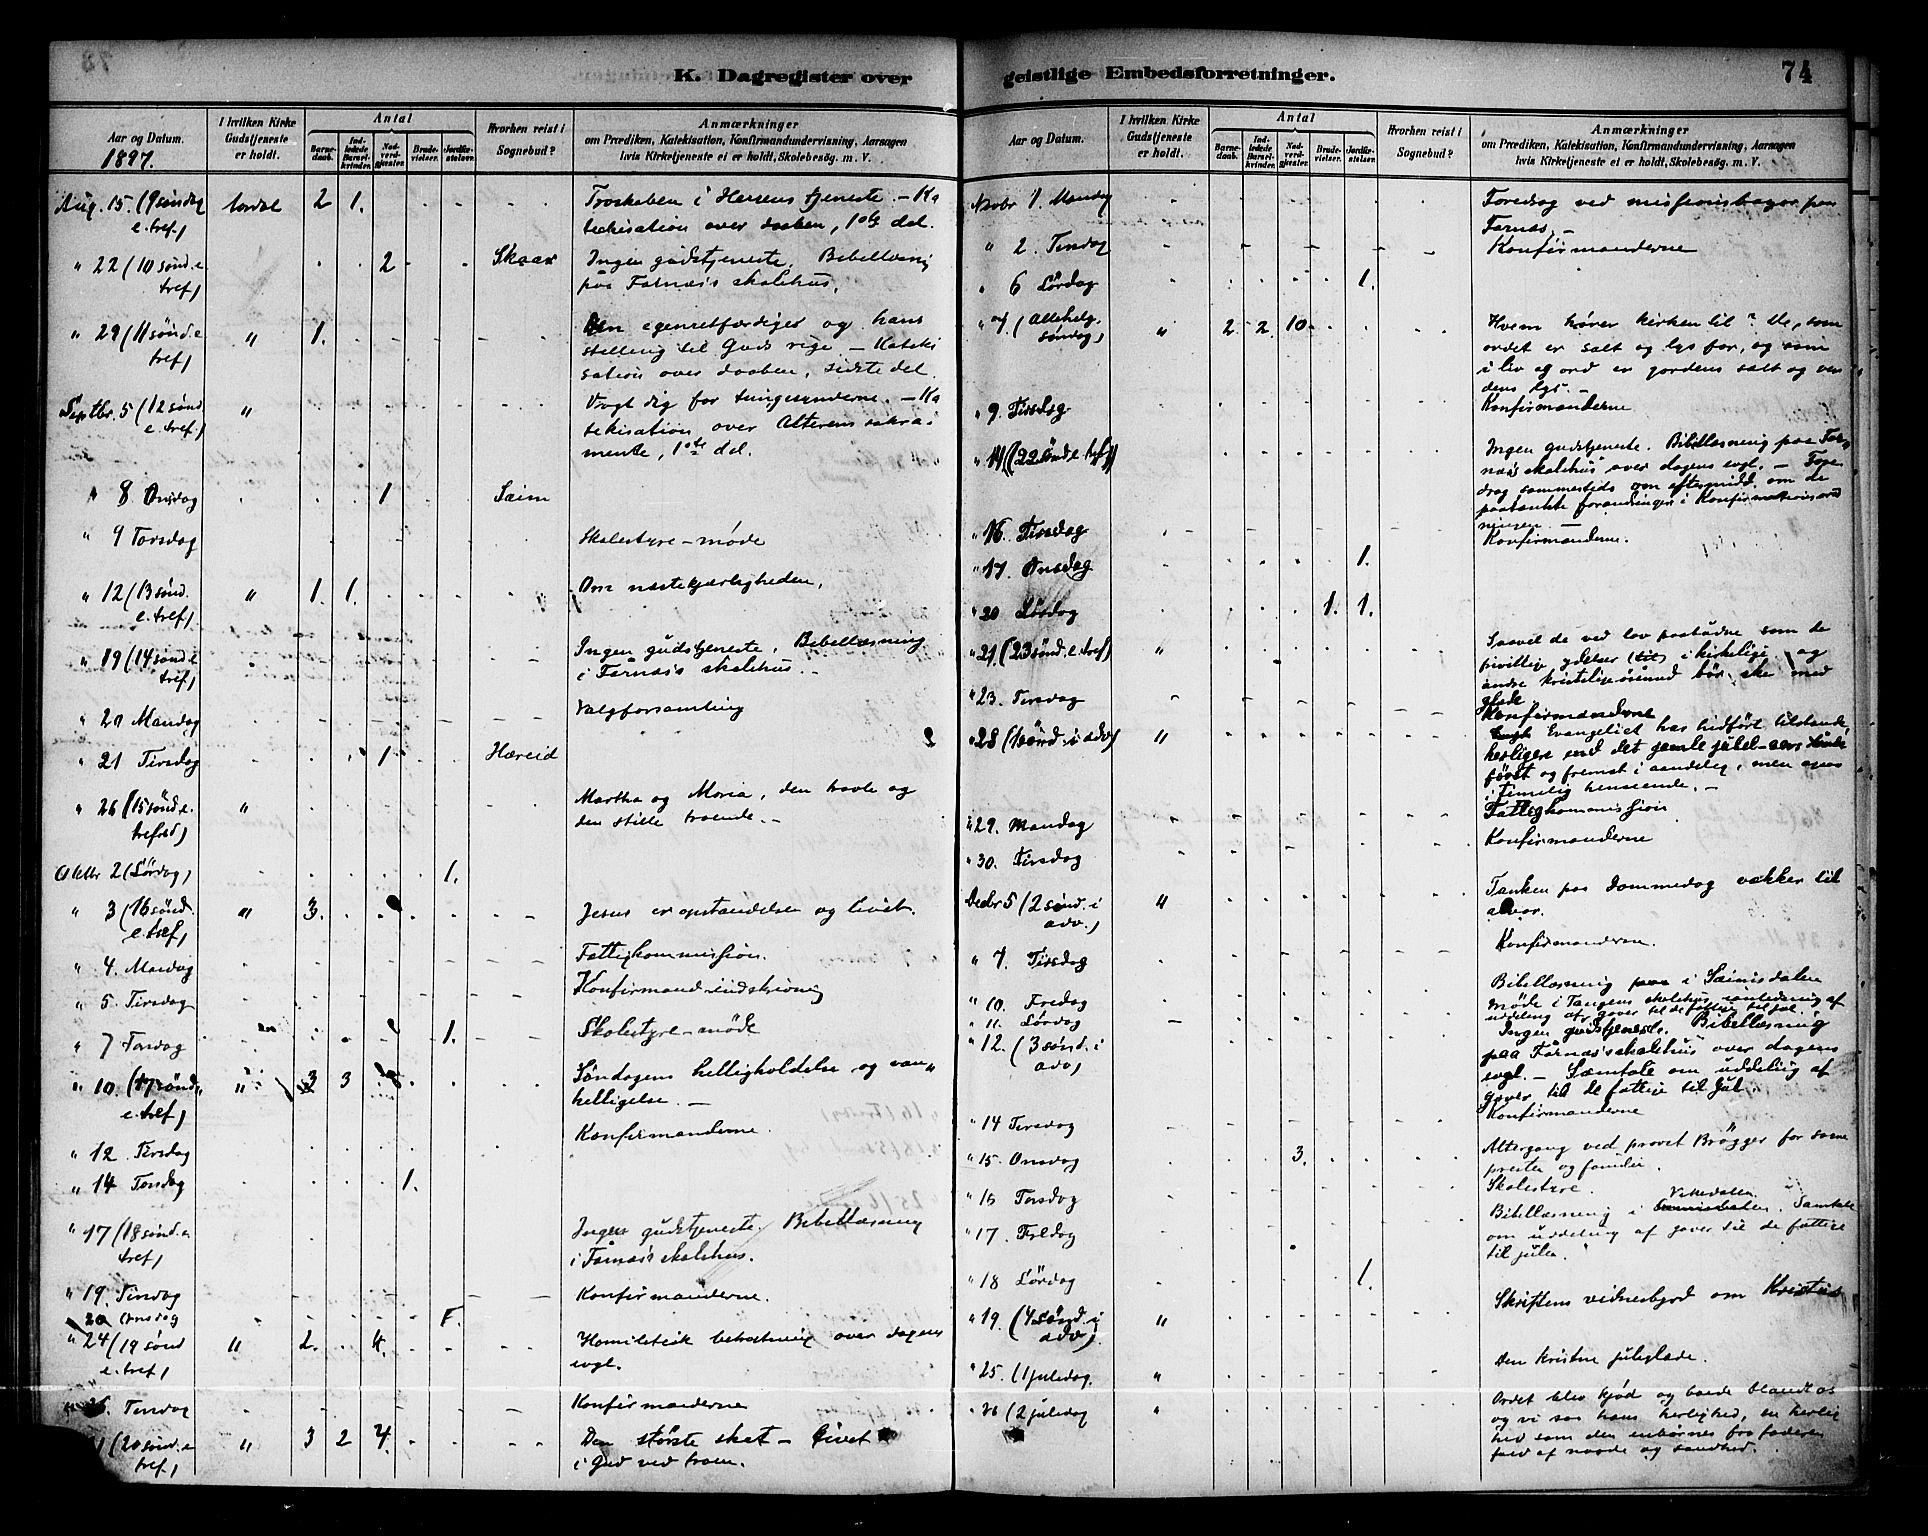 K. Dagregister over geistlige Embedsforretninger.
74
Aar og Datum.
1897.
I hvilken Kirke Gudstjeneste er holdt.
Antal
Barnedaab.
Indledede Barselkvinder.
Nadverdgjester.
Brudevielser.
Jordfæstelser.
Hvorhen reist i Sognebud?
Anmærkninger
om Prædiken, Katekisation, Konfirmandundervisning, Aarsagen
hvis Kirketjeneste ei er holdt, Skolebesøg. m. V.
Aug. 15. (9 søndag 2 1. Troskaben i Herrens tjeneste. – Ka
e. tref) tekisation over daaben, 1ste del.
" 22 (10 sønd. e 2 Skaar Ingen gudstjeneste. Bibellæsning
tref) paa Farnæs skolehus.
" 29 (11 sønd. e " 1. Den egenretfærdiges og hans
tref) stilling til Guds rige – Kateki
sation over daaben, sidste del.
Septbr. 5 (12 sønd. " Vogt dig for tungesynderne. – Ka
e. tref.) tekisation over Alterens sakra-
mente, 1ste del.
" 8 Onsdag 1 Seim
" 9 Torsdag Skolestyre-møde
" 12 (13 sønd. " 1. 1. Om næstekjærligheden.
e. tref)
" 19 (14 sønd. e Ingen gudstjeneste. Bibellæsning
tref) i Farnæs skolehus. –
" 20 Mandag Valgforsamling
" 21 Tirsdag 1 Hæreid
" 26 (15 sønd. e. " Martha og Maria, den travle og
trefod) den stille troende. –
Oktbr 2 (Lørdag) 1.
" 3 (16 sønd. " 3. Jesus er opstandelsen og livet.
e. tref)
" 4. Mandag Fattigkommission.
" 5. Tirsdag Konfirmand-indskrivning
" 7 Torsdag 1. Skolestyre-møde
" 10. (17 sønd. " 3 3 Søndagens helligholdelse og van-
e. tref) helligelse. –
" 12 Tirsdag Konfirmanderne.
" 14 Torsdag 1.
" 17 (18 sønd. e Ingen gudstjeneste. Bibellæsning
tref) i Farnæs skolehus.
" 19. Tirsdag Konfirmanderne.
20 Onsdag 1.
" 24 (19 sønd " 2. 4. Homiletisk betragtning over dagens
e. tref) evgl.
26. Tirsdag Konfirmanderne
(20 sønd. e " 3 2 4. Den største skat – livet
tref.) i Gud ved troen.
Aar og Datum.
I hvilken Kirke Gudstjeneste er holdt.
Antal
Barnedaab.
Indledede Barselkvinder.
Nadverdgjester.
Brudevielser.
Jordfæstelser.
Hvorhen reist i Sognebud?
Anmærkninger
om Prædiken, Katekisation, Konfirmandundervisning, Aarsagen
hvis Kirketjeneste ei er holdt, Skolebesøg. m. V.
Novbr 1. Mandag Foredrag ved missionsbazar paa
Farnæs. –
" 2. Tirsdag Konfirmanderne
" 6 Lørdag 1.
" 7 (Allehelg. " 2 2 10 Hvem hører kirken til? De, som
søndag) ordet er salt og lys for, og som
i liv og ord er jordens salt og ver
dens lys. –
" 9. Tirsdag Konfirmanderne
" 14 (22 sønd. e. tref) Ingen gudstjeneste. Bibellæsning paa Far-
næs skolehus over dagens evgl. – Fore
drag sammesteds om eftermidd. om de
paatænkte forandringer i Konfirmationsord
ningen. –
" 16. Tirsdag Konfirmanderne.
" 17. Onsdag 1.
" 20 Lørdag 1. 1.
" 21. (23 sønd. e. tref) " Saavel de ved lov paabudne som de
frivillige ydelser i kirkelige og
andre kristelige øiemed bør ske med
glæde
" 23. Tirsdag Konfirmanderne
" 28 (1 sønd. i adv) " Evangeliet har hidført tilstande,
herligere end det gamle jubel-aars
først og fremst i aandelig, men ogsaa
i timelig henseende. –
" 29. Mandag Fattigkommission
" 30. Tirsdag Konfirmanderne
Decbr 5 (2 sønd. i " Tanken paa dommedag vækker til
adv.) alvor.
" 7. Tirsdag Konfirmanderne.
" 10. Fredag Bibellæsning i Seimsdalen
" 11. Lørdag Møde i Tangens skolehus i anledning af
uddeling af gaver til de fattige til jul.
" 12. (3 sønd. i Ingen gudstjeneste. Bibellæsning
adv) paa Farnæs skolehus over dagens
evgl. – Samtale om uddeling af
gaver til de fattige til Jul.
" 14 Tirsdag Konfirmanderne
" 15. Onsdag 3. Altergang ved provst Brøgger for
prester og familie.
" 16 Torsdag Skolestyre.
" 17. Fredag Bibellæsning i Vettedalen. Samtale
om uddeling af gaver til de fattige
til julen.
" 18 Lørdag 1.
" 19. (4 sønd. i " Skriftens vidnesbyrd om Kristus
adv).
" 25. (1 juledag. " Den kristne juleglæde.
" 26 (2 juledag " Ordet blev kjød og boede blandt os
og vi saa hans herlighed, en herlig
hed som den enbornes fra faderen
fuld af naade og sandhed.